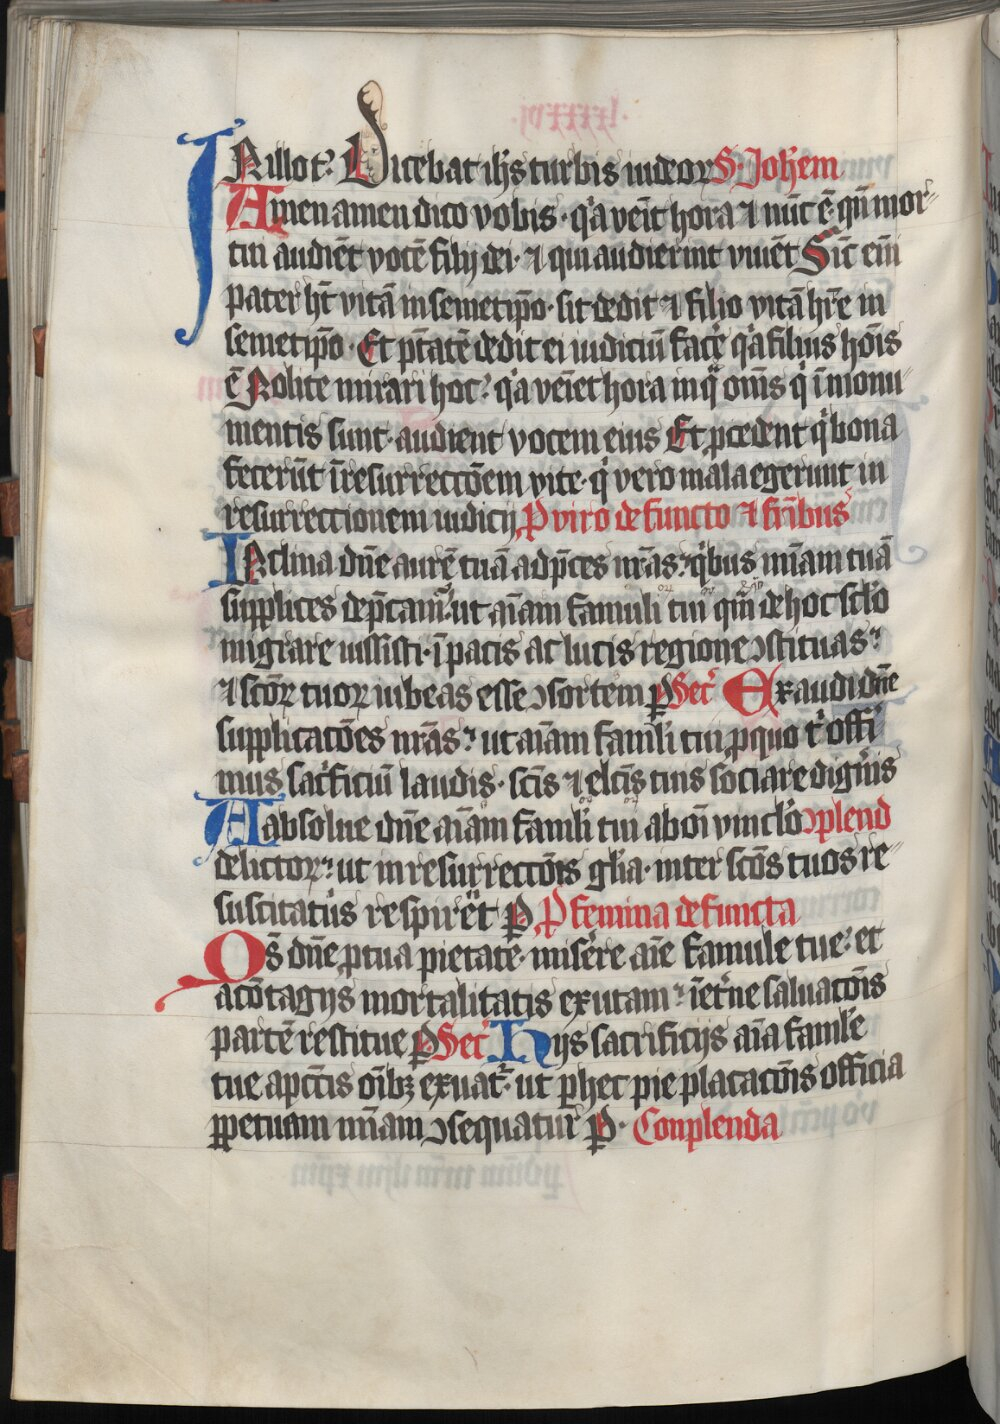 IN illo t̄. Dicebat ih̄s turbis iudeor S. Joh̄em
Amen amen dico vobis · q̇a veīt hora ⁊ nūc ē · qn̄ mor-
tui audiēt vocē filij dei · ⁊ qui audierint viuēt Sic̄ em̄
pater hꝫ vitā in semetip̄o · sic dedit ⁊ filio vitā hr̄e in
semetip̄o · Et pt̄atē dedit ei iudiciū fac̄e q̇a filius ho̅is
ē Nolite mirari hoc · q̇a veīet hora in q̄ om̄s q̇ ī monu-
mentis sunt · audient vocem eius Et ꝓcedent q̇ bona
fecerūt ī resurreccōem vite · q̇ vero mala egerunt in
resurrectionem iudicij P viro defuncto ⁊ fr̄ibus
INclina dn̄e aurē tuā ad p̄ces nr̄as · q̇bus mīam tuā
supplices dep̄camur · ut aīam famuli tui quā de hoc sc̄lo
migrare iussisti · ī pacis ac lucis regione ꝯstituas ·
⁊ sc̄oꝝ tuoꝝ iubeas esse ꝯsortem ꝑ Sec̄ Exaudi dn̄e
supplicacōes nr̄as · ut aīam famuli tui ꝓ quo t' offi
mus sac̄ficiū laudis · sc̄is ⁊ elc̄is tuis sociare digneris
Absolue dn̄e aīam famuli tui ab oī vinclo ꝯplend
delictoꝝ · ut in resurreccōis gl̄ia · inter sc̄os tuos re-
suscitatus respiret ꝑ P femina defuncta
Qs̄ dn̄e ꝓ tua pietate · miserere aīe famule tue · et
a cōtagijs mortalitatis exutam · ī et̄ne saluacōis
partē restitue ꝑ Sec̄ Hijs sacrificijs aīa famule
tue a pc̄cis oībꝫ exuat̄ · ut per hec pie placacōis officia
ꝑpetuam mīam ꝯsequatur ꝑ · Conplenda